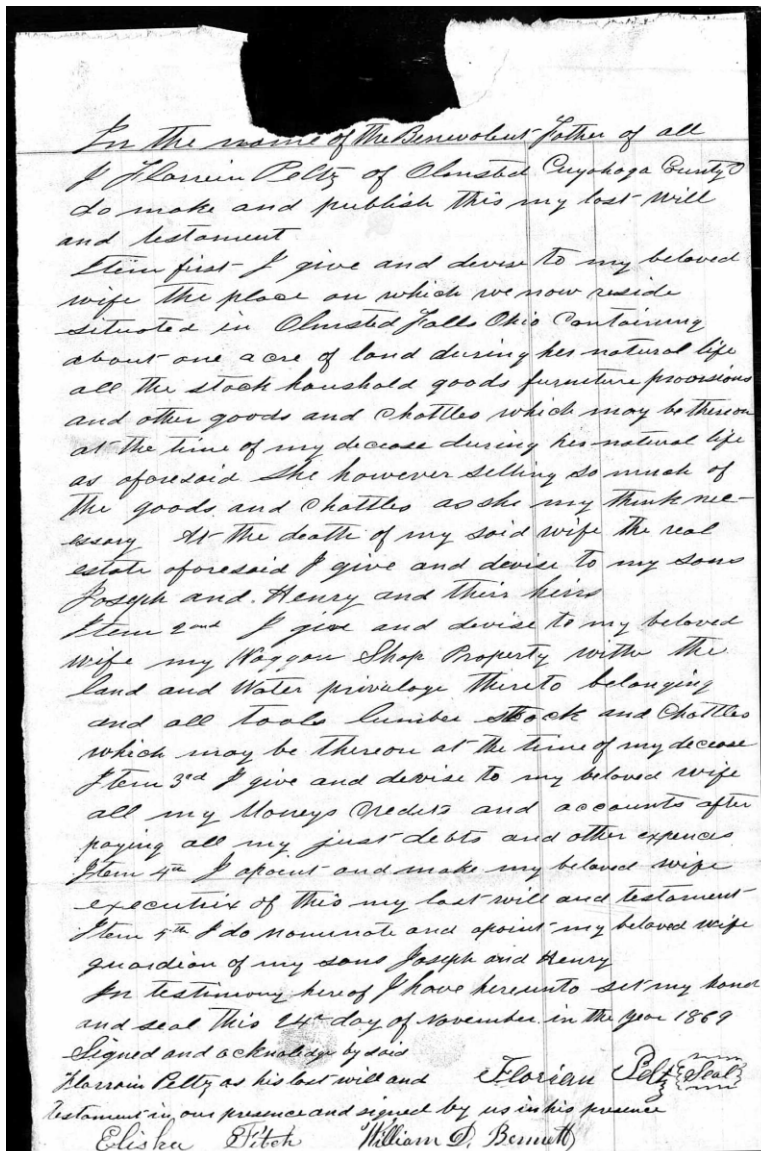 In the name of the Benevolent Father of all
I Florrein Peltz of Olmsted Cuyahoga County O
do make and publish this my last will
and testament
Item first I give and devise to my beloved
wife the place on which we now reside
situated in Olmsted Falls Ohio Containing
about one acre of land during her natural life
all the stock houshold goods furniture provisions
and other goods and Chattles which may be thereon
at the time of my decease during her natural life
as aforesaid She however selling so much of
the goods and Chattles as she my think nec-
essary At the death of my said wife the real
estate aforesaid I give and devise to my sons
Joseph and Henry and their heirs
Item 2nd I give and devise to my beloved
wife my Waggon Shop Property withe the
land and Water privaloge thereto belonging
and all tools lumber stock and Chattles
which may be thereon at the time of my decease
Item 3rd I give and devise to my beloved wife
all my Moneys Credits and accounts after
paying all my just debts and other expences
Item 4th I apoint and make my beloved wife
executrix of this my last will and testament
Item 5th I do nominate and apoint my beloved wife
guardian of my sons Joseph and Henry
In testimony hereof I have hereunto set my hand
and seal this 24th day of November in the year 1869
Signed and acknoledge by said
Florrain Peltz as his last will and Florian Peltz Seal
testament in our presence and signed by us in his presence
Elisha Fitch William D. Bennett